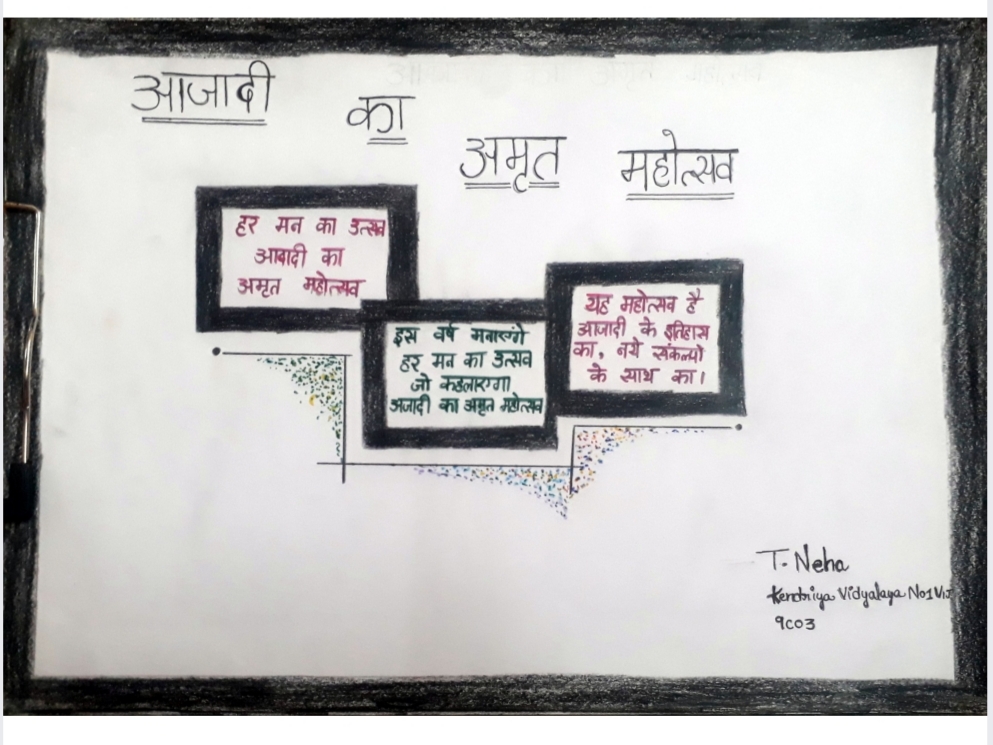 आजादी
का
अमृत महोत्सव
हर मन का उत्सव
आबादी का
अमृत महोत्सव
इस वर्ष मनाएंगे
हर मन का उत्सव
जो कहलाएगा
अजादी का अमृत महोत्सव
यह महोत्सव है
आजादी के इतिहास
का, नये संकल्पो
के साथ का।
T. Neha
Kendriya Vidyalaya No1
9C03